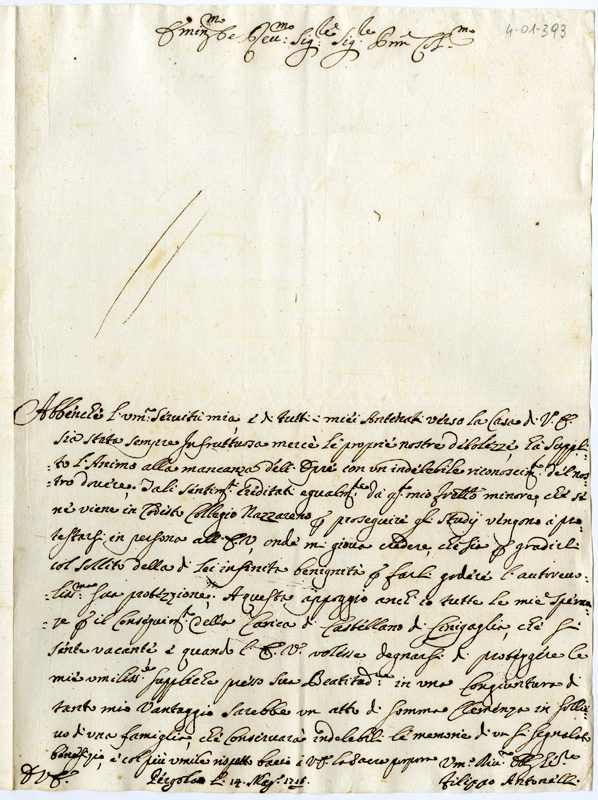 4-01-393
Em.mo e Rev.mo Sig.re Sig.re P.rone Col.mo
Abbenche l'um.ma Servitù mia e di tutti i miei Antenati verso la Casa di V. E.
sia stata sempre Infruttuosa mercè le proprie nostre debolezze, hà suppli-
to l'Animo alla mancanza dell' con un indelebile riconoscim.to del nos-
tro dovere. Tali sentim.ti ereditati egualm.te da q.to mio fratello minore, che se
ne viene in codesto Collegio Nazzareno p proseguire gli Studij vengono à pro-
testarsi in persona all' E. V. onde mi giova credere, che sia p gradirli
col sollito della di Lei infinita benignità p farli godere l'autorevo-
liss.ma sua protezzione. A questa appoggio anch'io tutte le mie Speran-
ze p il conseguim.to della Carica di Castellano di Sinigaglia, che si
sente vacante e quando l' E. V. volesse degnarsi di proteggere le
mie umiliss.e suppliche presso Sua Beatitud.e in una Congiuntura di
tanto mio Vantaggio sarebbe un atto di somma Clemenza in sollie-
vo di una famiglia, che conservarà indelebili le memorie di un sì segnalato
benefizio, e col più umile rispetto bacio à V. E. la Sacra porpora
D V. E. Pergola li 14 Mag.o Um.o
Filippo Antonelli